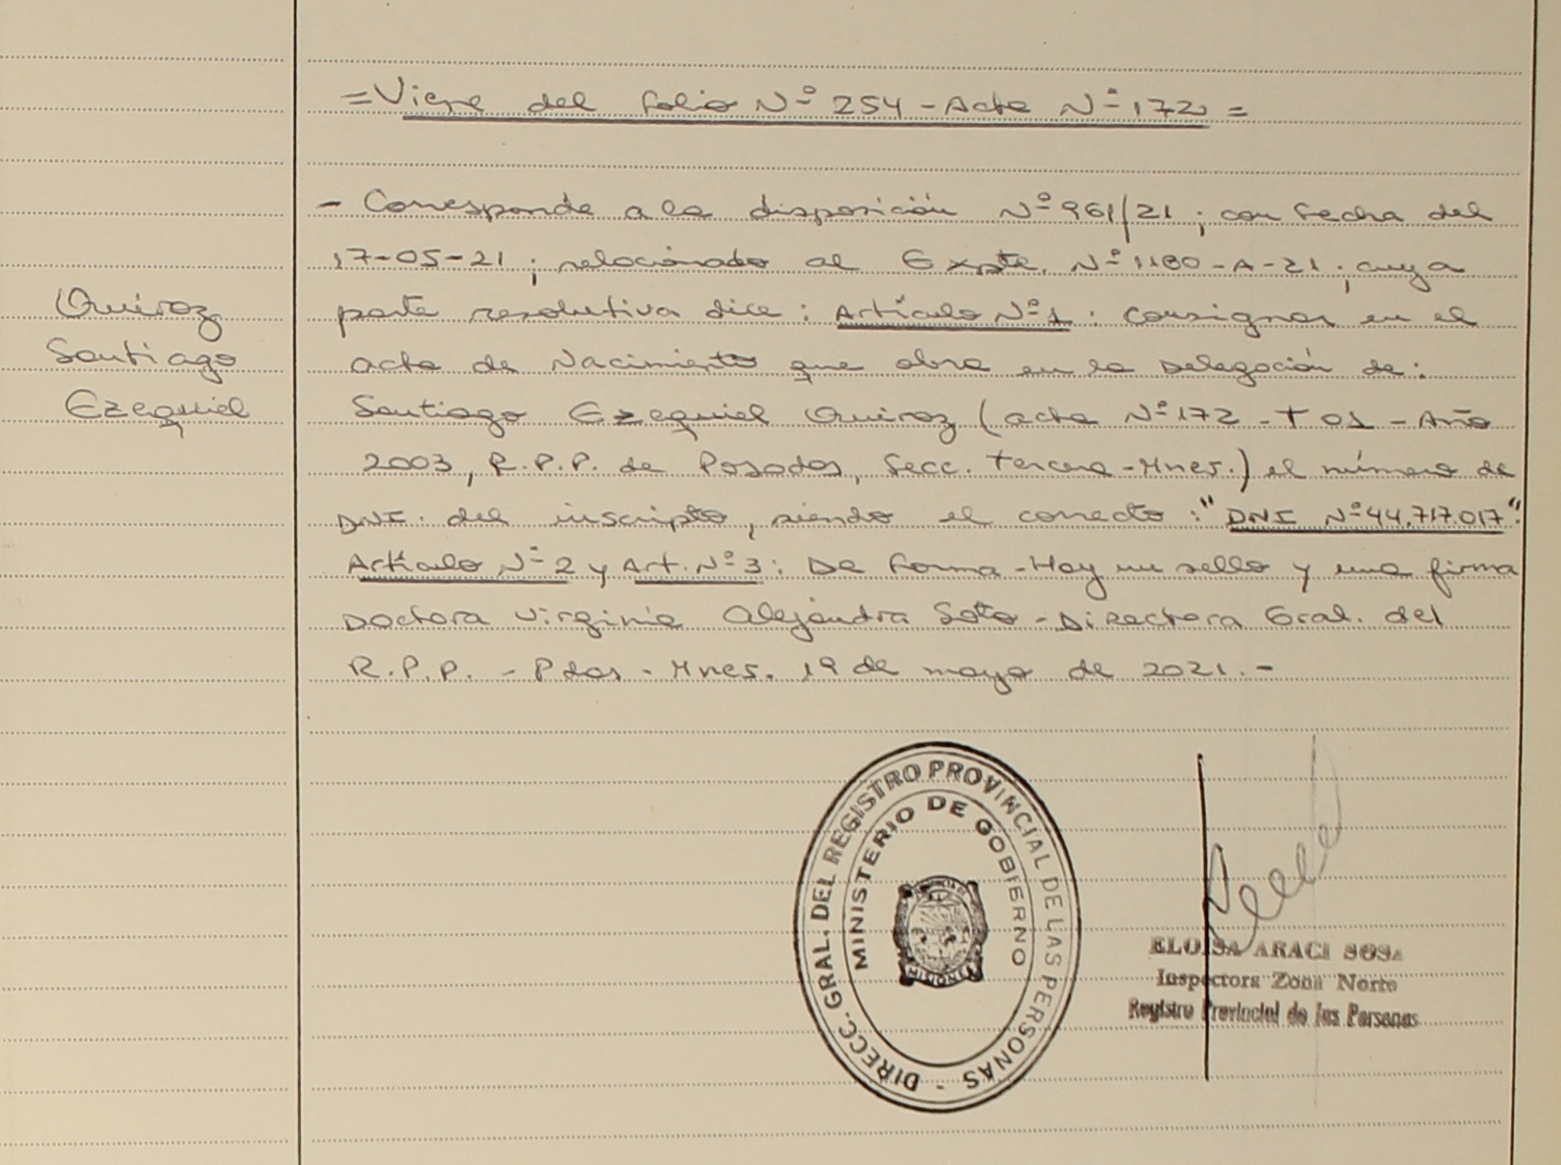 =Viene del folio Nº 254 - Acta Nº 172 =
- Corresponde a la disposición Nº 961/21 ; con fecha del
17-05-21 ; relacionado al Expte. Nº 1180-A-21 ; cuya
Quiroz
parte resolutiva dice : Artículo Nº 1 : Consignar en el
Santiago
acta de Nacimiento que obra en la Delegación de :
Ezequiel
Santiago Ezequiel Quiroz (acta Nº 172 - T 01 - Año
2003, R.P.P. de Posadas, Secc. Tercera - Mnes.) el número de
DNI. del inscripto, siendo el correcto : "DNI Nº 44.717.017".
Artículo Nº 2 y Art. Nº 3 : De forma - Hay un sello y una firma
Doctora Virginia Alejandra Soto - Directora Gral. del
R.P.P. - Pdas - Mnes. 19 de mayo de 2021. -
DIRECC. GRAL. DEL REGISTRO PROVINCIAL DE LAS PERSONAS -
MINISTERIO DE GOBIERNO
MISIONES
ELOISA ARACI SOSA
Inspectora Zona Norte
Registro Provincial de las Personas